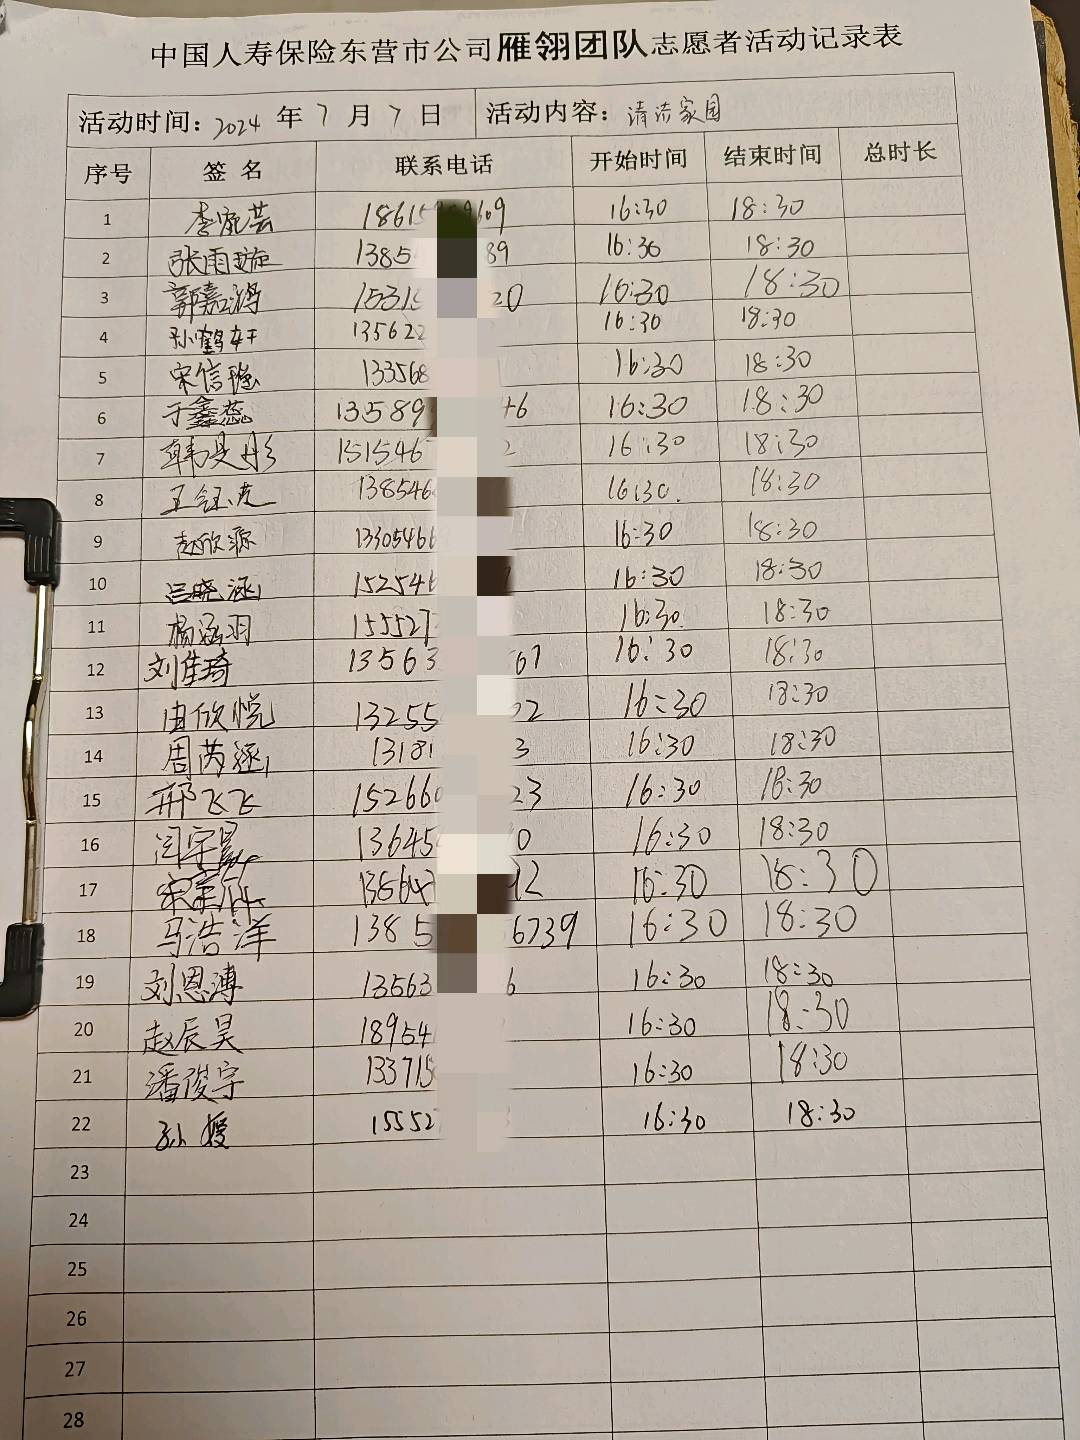 中国人寿保险东营市公司雁翎团队志愿者活动记录表
活动时间：2024 年 7 月 7 日 活动内容：清洁家园
序号 签名 联系电话 开始时间 结束时间 总时长
1 18615 609 16:30 18:30
2 张雨璇 1385 89 16:30 18:30
3 郭嘉鸿 1531 20 16:30 18:30
4 孙鹤轩 135622 16:30 18:30
5 133568 16:30 18:30
6 于鑫蕊 13589 46 16:30 18:30
7 151546 2 16:30 18:30
8 138546 16:30. 18:30
9 赵欣源 13305466 16:30 18:30
10 吕晓涵 152546 16:30 18:30
11 杨涵羽 155527 16:30 18:30
12 刘佳琦 13563 67 16:30 18:30
13 由欣悦 13255 02 16:30 18:30
14 周芮 1318 3 16:30 18:30
15 邢飞飞 15266 23 16:30 18:30
16 闫宇 13645 0 16:30 18:30
17 13864 92 16:30 18:30
18 马浩洋 1385 6739 16:30 18:30
19 刘恩溥 13563 6 16:30 18:30
20 赵辰昊 18954 16:30 18:30
21 潘俊宇 133715 16:30 18:30
22 孙媛 15552 16:30 18:30
23
24
25
26
27
28